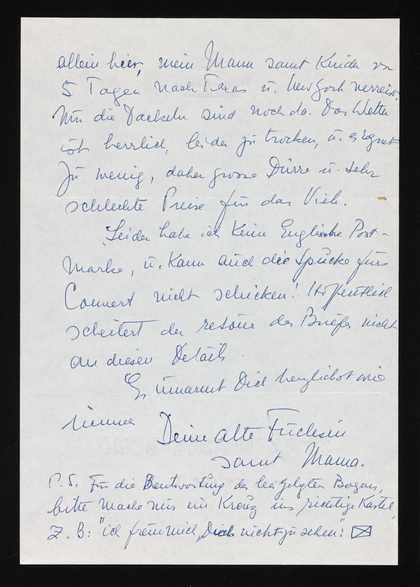 allein hier, mein Mann samt Kinder vor
5 Tagen nach Texas u. New York verreist.
Nur die Dackeln sind noch da. Das Wetter
ist herrlich, leider zu trocken, u. es regnet
zu wenig, daher grosse Dürre u. sehr
schlechte Preise für das Vieh.
Leider habe ich keine Englische Post-
marke, u. kann auch die Spucke fürs
Couvert nicht schicken! Hoffentlich
scheitert der retour des Briefes nicht
an diesen Details.
Es umarmt Dich herzlichst wie
immer
Deine alte Füchsin
samt Mama.
P.S. Für die Beantwortung des beigelegten Bogens,
bitte mache nur ein Kreuz ins richtige Kastel,
Z.B: "ich freu mich, Dich nicht zu sehen": ☒